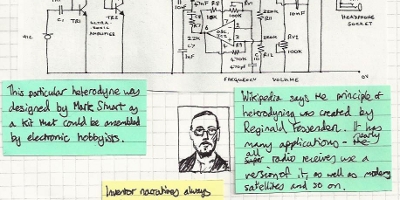 C1
TR1
TR2
ULTRA-
SONIC
AMPLIFIER
R12
100K
RV1
RV2
10MF
HEADPHONE
SOCKET
FREQUENCY
VOLUME
0V
This particular heterodyne was
designed by Mark Stuart as
a kit that could be assembled
by electronic hobbyists.
Wikipedia says the principle of
heterodyning was created by
Reginald Fessenden. It has
many applications - nearly
all super radio receives use a
version of it, as well as modern
satellites and so on.
Inventor narratives always